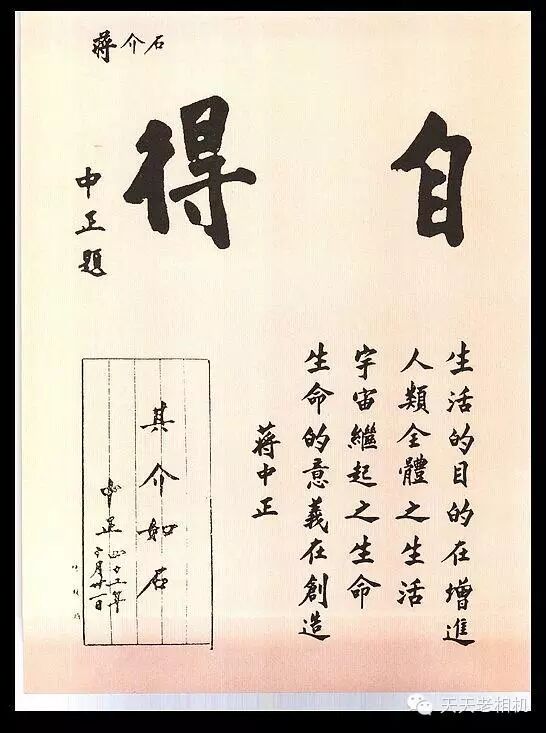 蔣介石
自得
中正題
生活的目的在增進
人類全體之生活
宇宙繼起之生命
生命的意義在創造
蔣中正
其介如石
中正
天天老相机